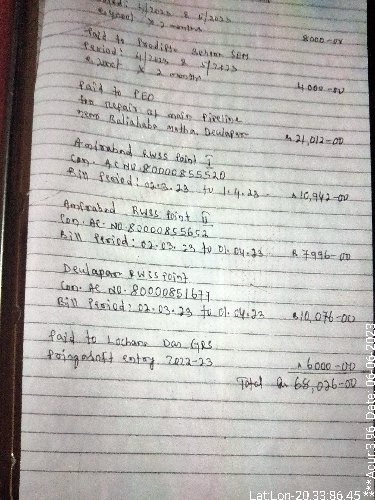 Period: 4/2023 & 5/2023
@ 4000/ X 2 months 8000-00
Paid to Pradipta SEM
Period: 4/2023 & 5/2023
@ 2000/ X 2 months 4000-00
Paid to PEO
for repair at main Pipeline
near Matha, Dewlapar R 21,012-00
RWSS Point I
Con. AC NO. 80000855520
Bill Period: 02.3.23 to 1.4.23 R 10,942-00
RWSS Point II
Con. AC. NO. 80000855652
Bill Period: 02.03.23 to 01.04.23 R 7996-00
Dewlapar RWSS Point
Con. AC NO. 80000851677
Bill Period: 02.03.23 to 01.04.23 R 10,076-00
Paid to Lochana Das GRS
entry 2022-23 R 6000-00
Total R 68,026-00
Lat Lon-20.33.86.45***Acur:3.96, Date: 06-06-2023